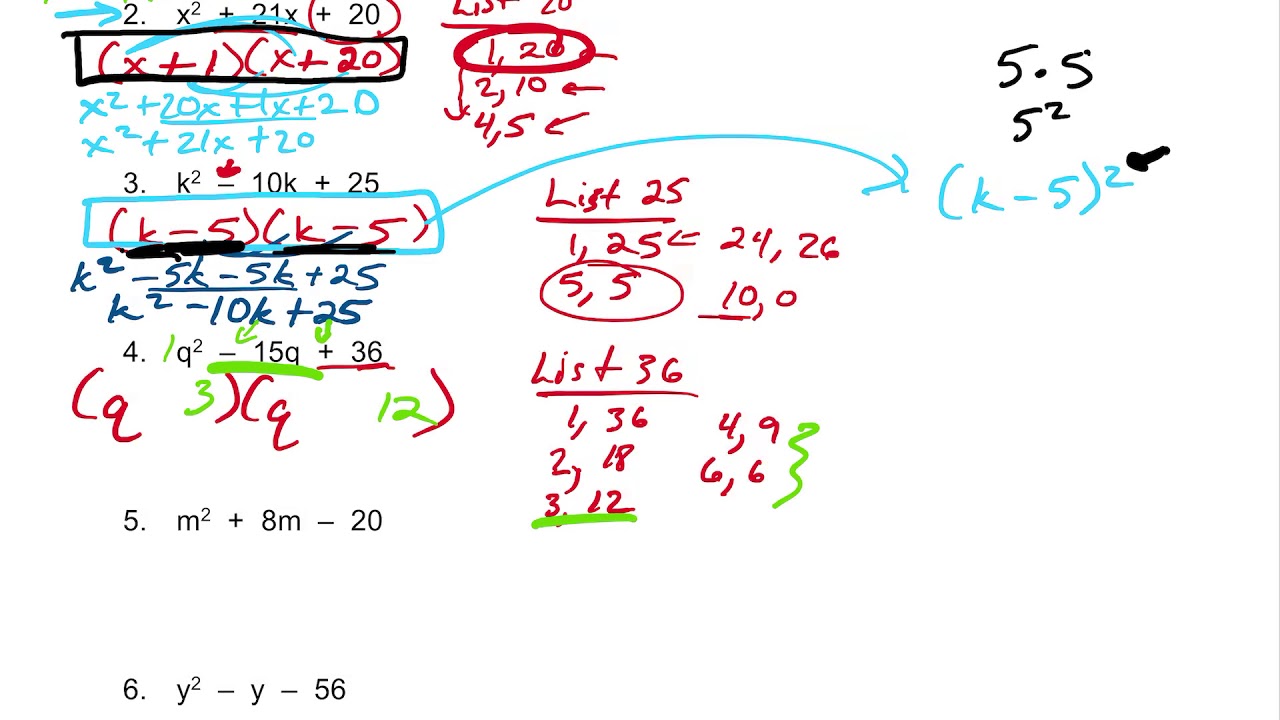 2. x² + 21x + 20
(x + 1)(x + 20)
x² + 20x + 1x + 20
x² + 21x + 20
List 20
1, 20
2, 10
4, 5
5 • 5
5²
3. k² – 10k + 25
(k – 5)(k – 5)
k² – 5k – 5k + 25
k² – 10k + 25
List 25
1, 25 24, 26
5, 5 10, 0
(k – 5)²
4. 1q² – 15q + 36
(q 3)(q 12)
List 36
1, 36 4, 9
2, 18 6, 6
3, 12
5. m² + 8m – 20
6. y² – y – 56